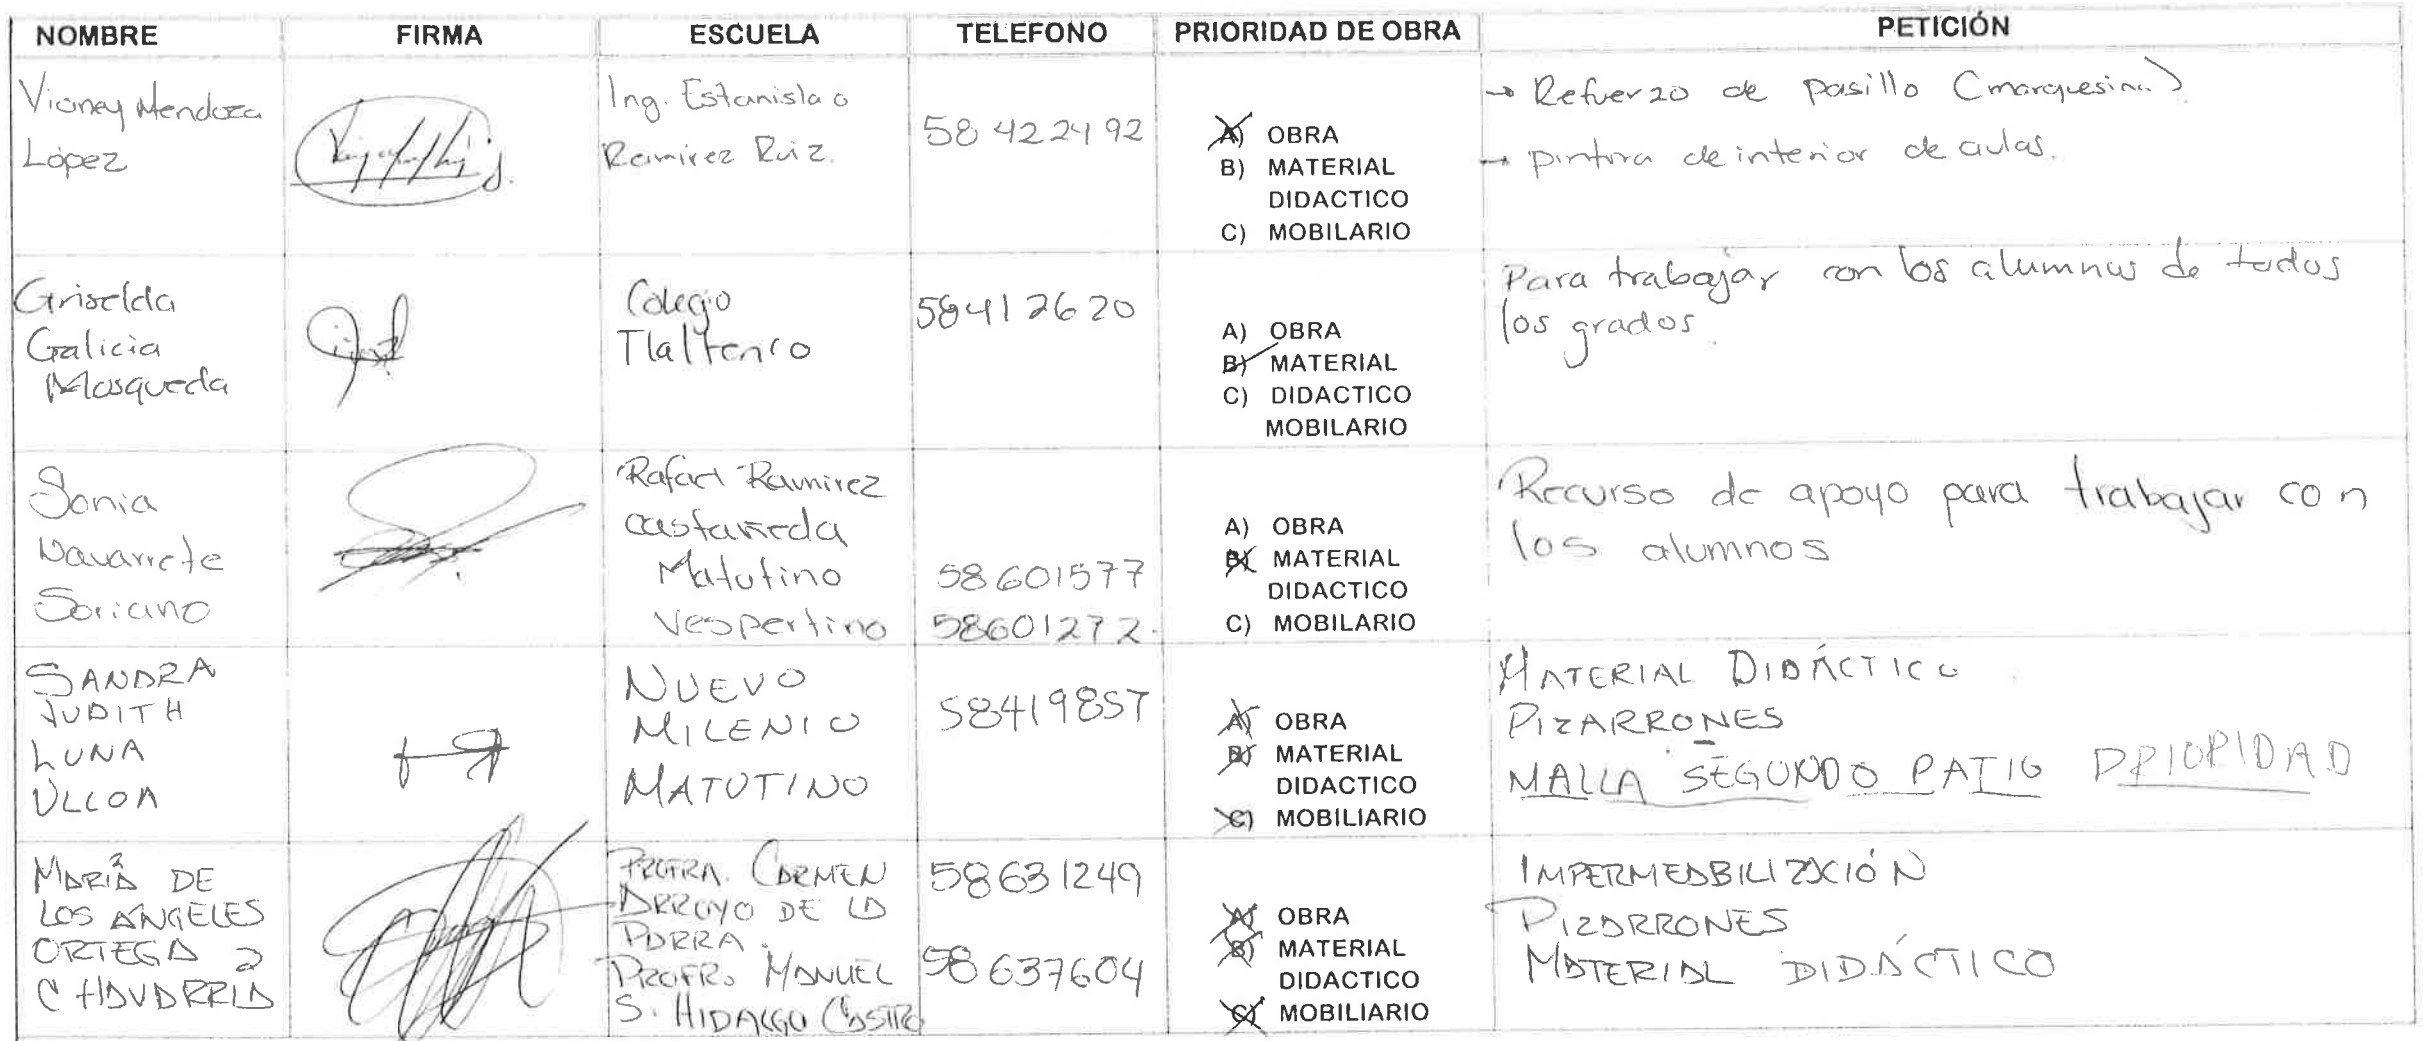 NOMBRE FIRMA ESCUELA TELEFONO PRIORIDAD DE OBRA PETICIÓN
Vianey Mendoza
López
Ing. Estanislao
Ramirez Ruiz.
58 422492
A) OBRA
B) MATERIAL
DIDACTICO
C) MOBILARIO
→ Refuerzo de pasillo (marquesina)
→ pintura de interior de aulas.
Griselda
Galicia
Mosqueda
Colegio
Tlaltenco
58412620
A) OBRA
B) MATERIAL
C) DIDACTICO
MOBILARIO
Para trabajar con los alumnos de todos
los grados.
Sonia
Navarrete
Soriano
Rafael Ramirez
castañeda
Matutino
Vespertino
58601577
58601272.
A) OBRA
B) MATERIAL
DIDACTICO
C) MOBILARIO
Recurso de apoyo para trabajar con
los alumnos
SANDRA
JUDITH
LUNA
ULLOA
NUEVO
MILENIO
MATUTINO
58419857
A) OBRA
B) MATERIAL
DIDACTICO
C) MOBILIARIO
MATERIAL DIDÁCTICO
PIZARRONES
MALLA SEGUNDO PATIO PRIORIDAD
MARÍA DE
LOS ANGELES
ORTEGA
CHAVARRIA
PROFRA. CARMEN
ARROYO DE LA
PARRA.
PROFR. MANUEL
S. HIDALGO CASTRO
58631249
58637604
A) OBRA
B) MATERIAL
DIDACTICO
C) MOBILIARIO
IMPERMEABILIZACIÓN
PIZARRONES
MATERIAL DIDÁCTICO